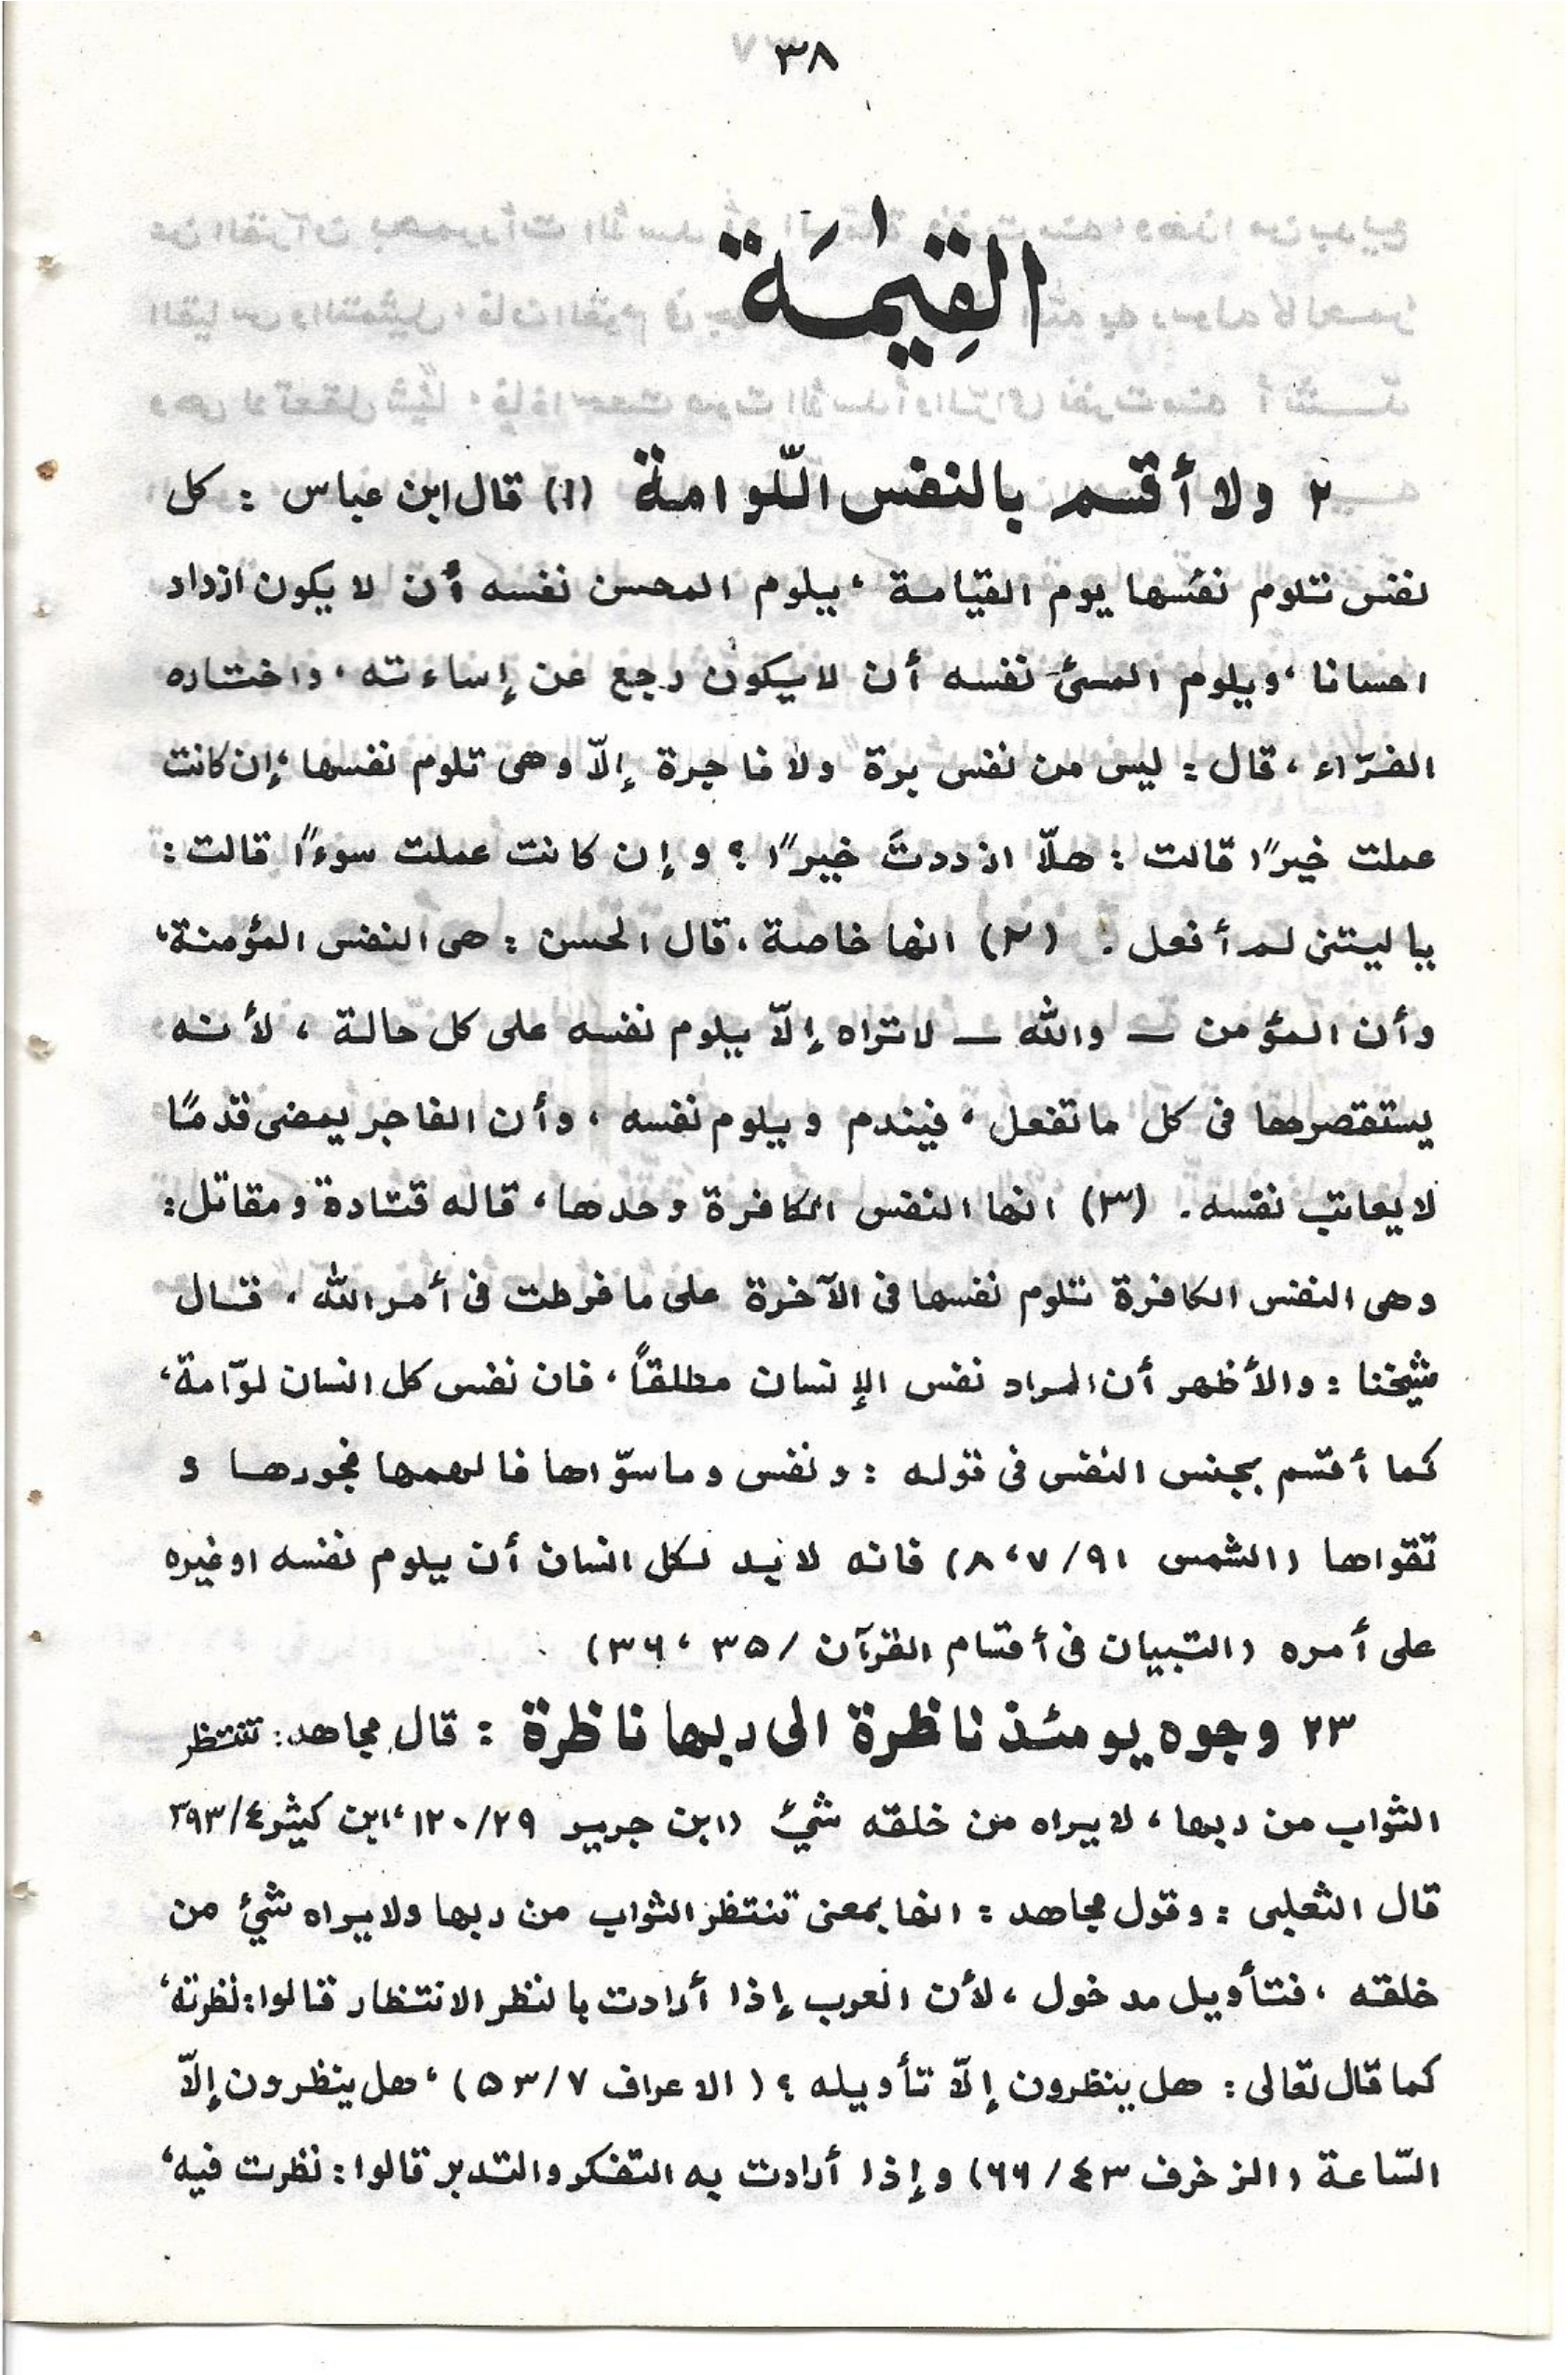 ٣٨
القِيٰمَة
٢ ولا أقسم بالنفس اللّوامة (١) قال ابن عباس : كل
نفس تلوم نفسها يوم القيامة ، يلوم المحسن نفسه أن لا يكون ازداد
احسانا ، ويلوم المسئ نفسه أن لا يكون رجع عن إساءته ، واختاره
الفرّاء ، قال : ليس من نفس برة ولا فاجرة إلاّ وهى تلوم نفسها ، إن كانت
عملت خيرًا قالت : هلّا ازددتَ خيرًا ؟ و إن كانت عملت سوءًا قالت :
يا ليتنى لم أفعل . (٢) انها خاصة ، قال الحسن : هى النفس المؤمنة ،
وأن المؤمن ــ والله ــ لا تراه إلاّ يلوم نفسه على كل حالة ، لأنه
يستقصرها فى كل ما تفعل ، فيندم و يلوم نفسه ، وأن الفاجر يمضى قدمًا
لا يعاتب نفسه . (٣) انها النفس الكافرة وحدها ، قاله قتادة ومقاتل :
وهى النفس الكافرة تلوم نفسها فى الآخرة على ما فرطت فى أمر الله ، قال
شيخنا : والأظهر أن المراد نفس الإنسان مطلقاً ، فان نفس كل انسان لوّامة ،
كما أقسم بجنس النفس فى قوله : ونفس وما سوّاها فالهمها فجورها و
تقواها (الشمس ٩١/٧ ، ٨) فانه لا بد لكل انسان أن يلوم نفسه او غيره
على أمره (التبيان فى أقسام القرآن / ٣٥ ، ٣٦)
٢٣ وجوه يومئذ ناظرة الى ربها ناظرة : قال مجاهد : تنتظر
الثواب من ربها ، لا يراه من خلقه شئ (ابن جرير ٢٩/١٢٠ ، ابن كثير ٤/٣٩٣
قال الثعلبى : وقول مجاهد : انها بمعنى تنتظر الثواب من ربها ولا يراه شئ من
خلقه ، فتأويل مدخول ، لأن العرب إذا أرادت بالنظر الانتظار قالوا : نظرته ،
كما قال تعالى : هل ينظرون إلاّ تأويله ؟ (الاعراف ٧/٥٣) ، هل ينظرون إلاّ
السّاعة (الزخرف ٤٣/٦٦) و إذا أرادت به التفكر والتدبر قالوا : نظرت فيه ،